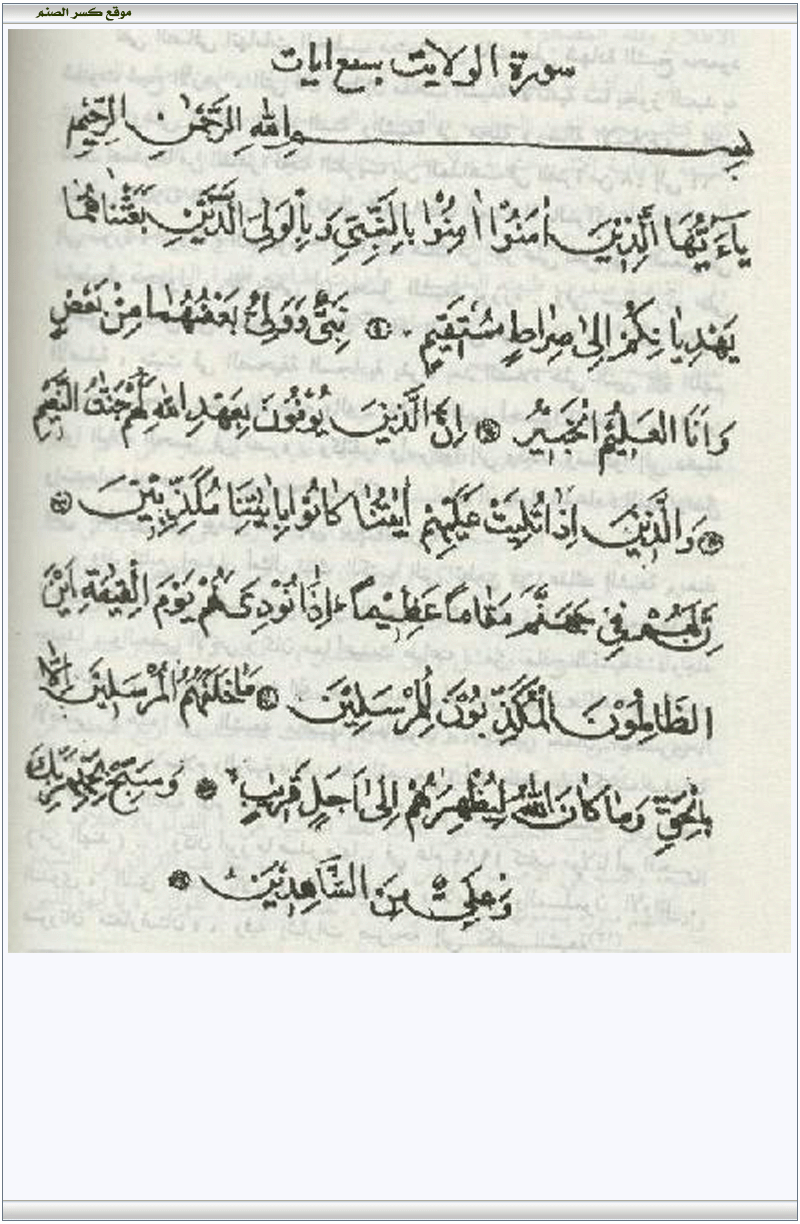 موقع كسر الصنم
سورة الولايت سبع ايات
بسم الله الرحمن الرحيم
يٰاَءَيُّهَا الَّذِيْنَ اٰمَنُوْا اٰمِنُوْا بِالنَّبِيِّ وَبِالْوَلِىِّ الَّذَيْنِ بَعَثْنَاهُمَا
يَهْدِيٰانِكُمْ اِلىٰ صِرٰاطٍ مُسْتَقِيمٍ . ۞ نَبِىٌّ وَوَلِىٌّ بَعْضُهُمٰا مِنْ بَعْضٍ
وَاَنَا الْعَلِيْمُ الْخَبِيْرُ ۞ اِنَّ الَّذِيْنَ يُوْفُوْنَ بِعَهْدِ اللهِ لَهُمْ جَنّٰتُ النَّعِيْمِ
۞ وَالَّذِيْنَ اِذٰا تُلِيَتْ عَلَيْهِمْ اٰيٰتُنٰا كَانُوْا بِاٰيٰتِنَا مُكَذِّبِيْنَ ۞
اِنَّ لَهُمْ فِىْ جَهَنَّمَ مَقَامًا عَظِيْمًا اِذٰا نُوْدِىَ لَهُمْ يَوْمَ الْقِيٰمَةِ اَيْنَ
الظَّالِمُوْنَ الْمُكَذِّبُوْنَ لِلْمُرْسَلِيْنَ ۞ مٰا خَلَقَهُمُ الْمُرْسَلِيْنَ اِلّٰا
بِالْحَقِّ وَمٰا كٰانَ اللهُ لِيُظْهِرَهُمْ اِلىٰ اَجَلٍ قَرِيْبٍ ۞ وَسَبِّحْ بِحَمْدِ رَبِّكَ
وَعَلِىٌّ مِنَ الشَّاهِدِيْنَ ۞